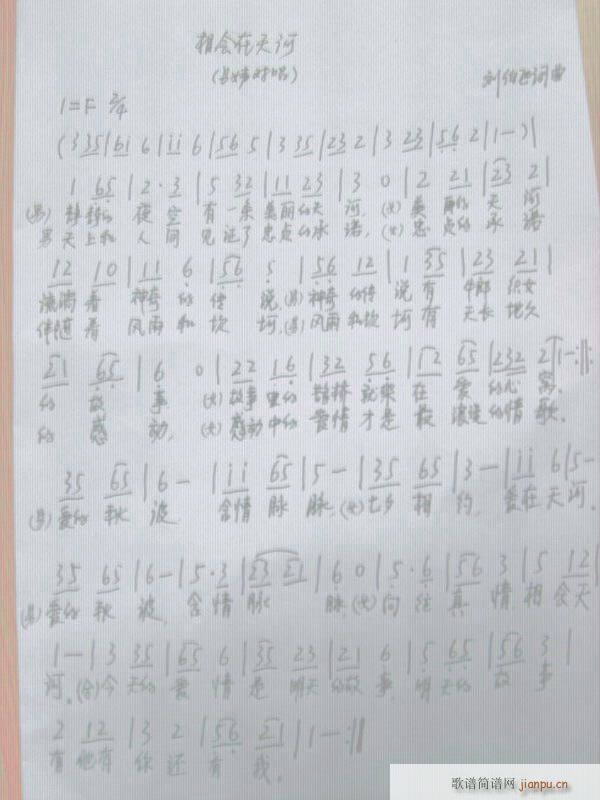 相会在天河
(男女声对唱)
刘伯 词曲
1=F 2/4
(3 35|6i 6|ii 6|56 5|3 35|23 2|3 23|56 2|1-)|
1 65|2·3|5 32|11 23|3 0|2 21|23 2|
(男)静静的 夜空 有一条 美丽的天 河,(女)美丽的 天 河
男天上和 人间 见证了 忠贞的承 诺,(女)忠贞的 承 诺
12 10|11 6|56 5|56 12|1 35|23 21|
流淌 着 神奇 的 传 说,(男)神奇 的传 说 有 牛郎 织女
伴随 着 风雨 和 坎 坷,(男)风雨 和坎 坷 有 天长 地久
21 65|6 0|22 16|32 56|12 65|232 21-:||
的 故 事 (女)故事 里的 鹊桥 就架 在 爱 的心 窝。
的 感 动,(女)感动 中的 爱情 才是 最 浪漫的情 歌。
35 65|6-|ii 65|5-|35 65|3-|ii 6|5-
(男)爱的 秋 波 含情 脉 脉,(女)七夕 相 约, 爱在 天 河。
35 65|6-|5·3|23 21|6 0|5·6|56 3|5 12|
(男)爱的 秋 波, 含 情 脉 脉,(女)向 往 真 情 相 会天
1-|3 35|65 6|35 23|21 6|5 65|56 3|
河。(合)今 天的 爱 情 是 明天 的故 事, 明 天的 故 事
2 12|3 2|56 21|1-:||
有 他有 你 还 有 我。
歌谱简谱网 jianpu.cn